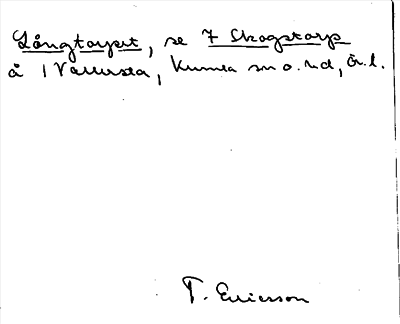 Långtorpet, se 7 Skogstorp
å 1 Vallersta, Kumla sn o. hd, Ö. l.
T. Ericsson